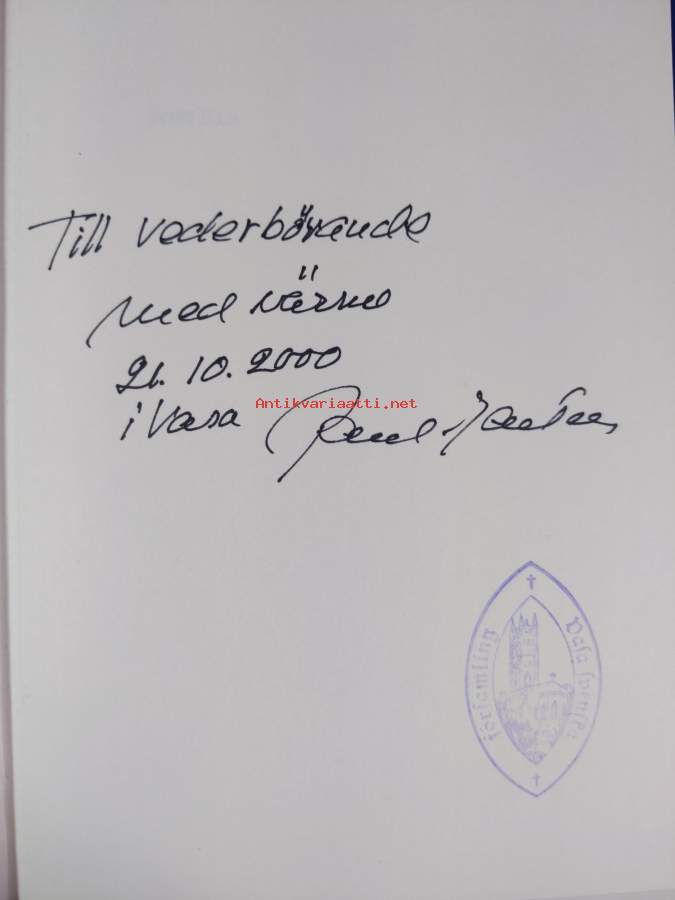 Till vederbörande
med värme
21.10.2000
i Vasa
Antikvariaatti.net
församling
Vasa svenska